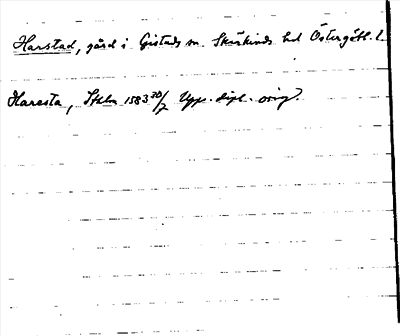 Harstad, gård i Gistads sn. Skärkinds hd Östergötl. l.
Haresta, Sthlm 1583 30/7 Upps. dipl. orig.